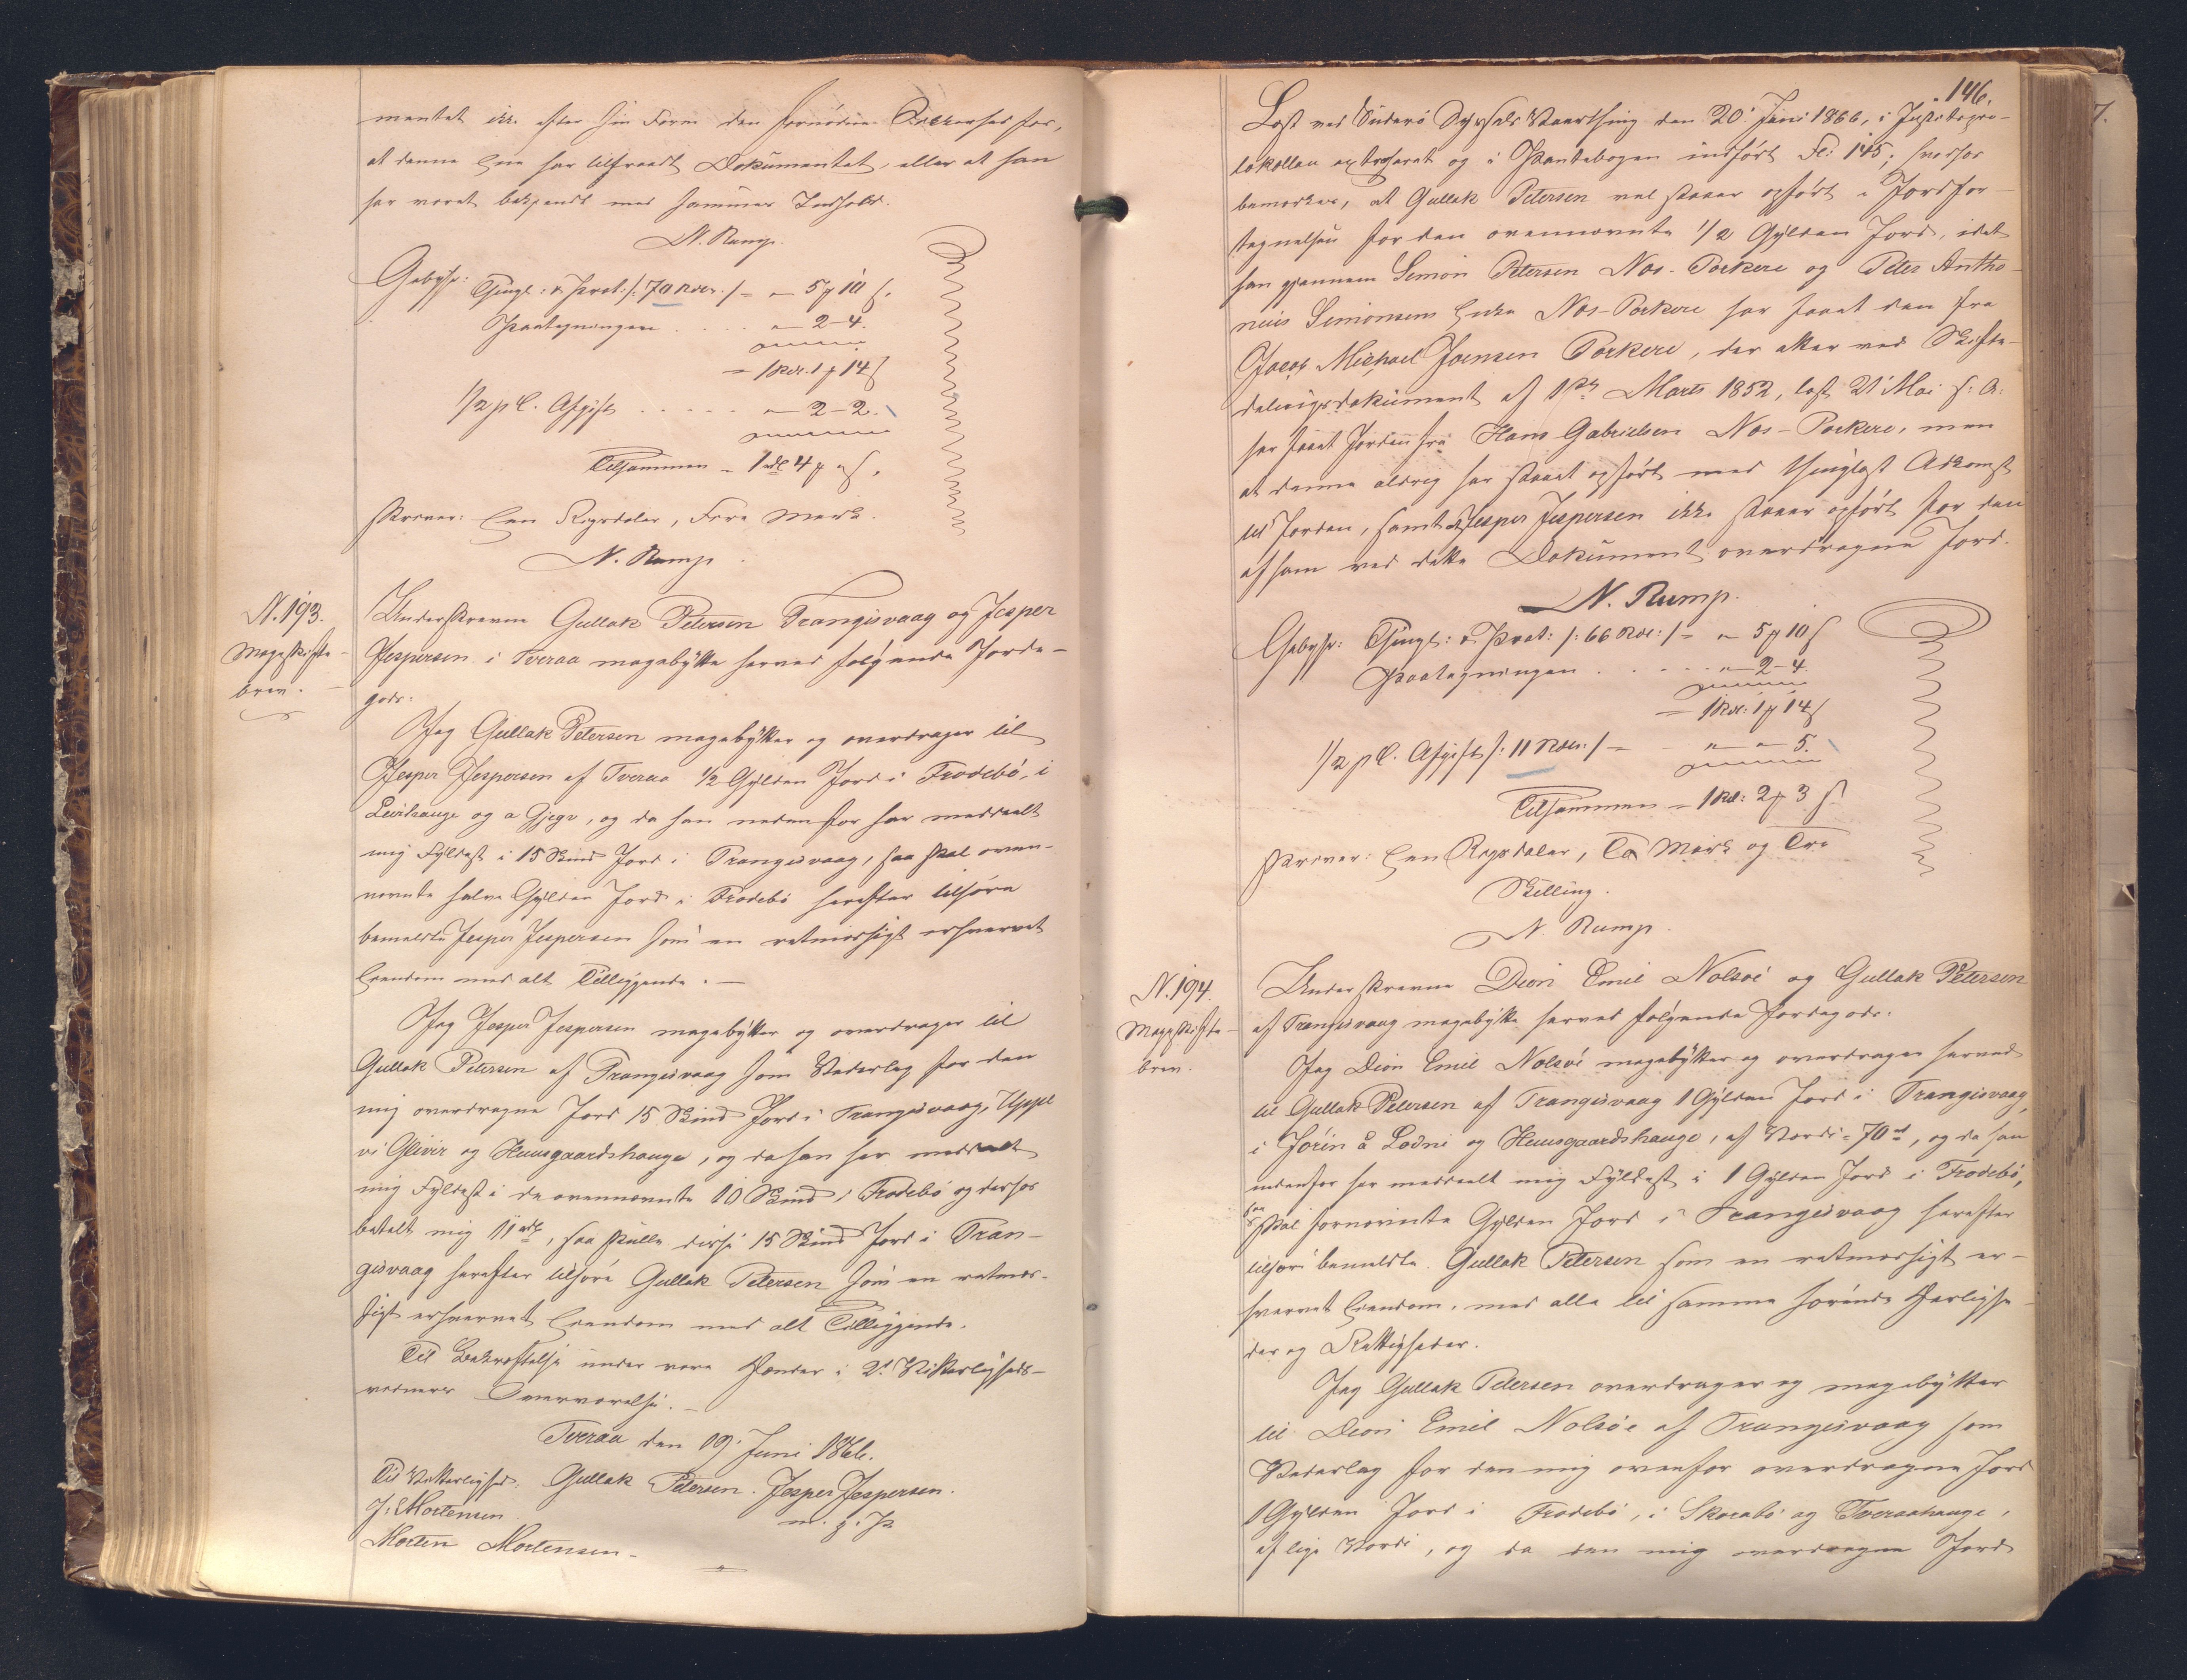 mentet ikke efter sin Form den fornødne Sikkerhed for,
at denne Een har tiltraadt Dokumentet, eller at han
har været bekjendt med sammes Indhold.
N. Rump.
Gebyhr: Thingl: & Prot: /: 70 Rdr. :/ = „ 5 ℳ 10 ß.
Paategningen . . . . „ - 2 - 4.
= 1 Rdr. 1 ℳ 14 ß
1/2 pC. Afgift . . . . . „ - 2 - 2.
Tilsammen = 1 rdl 4 ℳ „ ß.
skriver: Een Rigsdaler, Fire Mark.
N. Rump.
N. 193.
Mageskifte-
brev.
Underskrevne Gullak Petersen Trangisvaag og Jesper
Jespersen i Tveraa magebytte herved følgende Jorde-
gods:
Jeg Gullak Petersen magebytter og overdrager til
Jesper Jespersen af Tveraa 1/2 Gylden Jord i Frodebø, i
Leirhauge og a Gjegv, og da han nedenfor har meddeelt
mig Fyldest i 15 Skind Jord i Trangisvaag, saa skal oven-
nævnte halve Gylden Jord i Frodebø herefter tilhøre
bemeldte Jesper Jespersen som en retmæssigt erhvervet
Eiendom med alt Tilliggende. —
Jeg Jesper Jespersen magebytter og overdrager til
Gullak Petersen af Trangisvaag som Vederlag for den
mig overdragne Jord 15 Skind Jord i Trangisvaag, Uppe
vi Glivir og Huusgaardshauge, og da han har meddeelt
mig Fyldest i de ovennævnte 10 Skind i Frodebø og derhos
betalt mig 11 rdl, saa skulle disse 15 Skind Jord i Tran-
gisvaag herefter tilhøre Gullak Petersen som en retmæs-
sigt erhvervet Eiendom med alt Tilliggende.
Til Bekræftelse under vore Hænder i 2de Vitterligheds-
vidners Overværelse. —
Tveraa den 19. Juni 1866.
Til Vitterlighed: Gullak Petersen. Jesper Jespersen.
J. Mortensen m. f. P.
Morten Mortensen. —
146.
Læst ved Suderø Syssels Vaarthing den 20. Juni 1866, i Justitspro-
tokollen extraheret og i Pantebogen indført Fl: 145; hvorhos
bemærkes, at Gullak Petersen vel staaer opført i Jordfor-
tegnelsen for den ovennævnte 1/2 Gylden Jord, idet
han gjennem Simon Petersen Nes-Porkere og Peter Antho-
nius Simonsens Enke Nes-Porkere har faaet den fra
Jacob Michael Joensen Porkere, der atter ved Skifte-
delingsdokument af 1ste Marts 1852, læst 21 Mai s: A:
har faaet Jorden fra Hans Gabrielsen Nes-Porkere, men
at denne aldrig har staaet opført med thinglæst Adkomst
til Jorden, samt at Jesper Jespersen ikke staaer opført for den
af ham ved dette Dokument overdragne Jord.
N. Rump.
Gebyhr: Thingl: & Prot: /: 66 Rdr: :/ = „ 5 ℳ 10 ß
Paategningen . . . . . „ - 2 - 4.
= 1 Rdr: 1 ℳ 14 ß
1/2 pC. Afgift /: 11 Rdlr. :/ = „ - „ - 5.
Tilsammen = 1 Rdl: 2 ℳ 3 ß
skriver: Een Rigsdaler, To Mark og Tre
Skilling.
N. Rump.
N. 194.
Mageskifte-
brev.
Underskrevne Dion Emil Nolsøe og Gullak Petersen
af Trangisvaag magebytte herved følgende Jordegods:
Jeg Dion Emil Nolsøe magebytter og overdrager herved
til Gullak Petersen af Trangisvaag 1 Gylden Jord i Trangisvaag,
i Jørin å Lødni og Huusgaardshauge, af Værdi = 70 rd, og da han
nedenfor har meddeelt mig Fyldest i 1 Gylden Jord i Frodebø,
saa skal førnævnte Gylden Jord i Trangisvaag herefter
tilhøre bemeldte Gullak Petersen som en retmæssigt er-
hvervet Eiendom, med alle til samme hørende Herlighe-
der og Rettigheder.
Jeg Gullak Petersen overdrager og magebytter
til Dion Emil Nolsøe af Trangisvaag som
Vederlag for den mig ovenfor overdragne Jord
1 Gylden Jord i Frodebø, i Skorabø og Tveraahauge,
af lige Værdi, og da den mig overdragne Jord